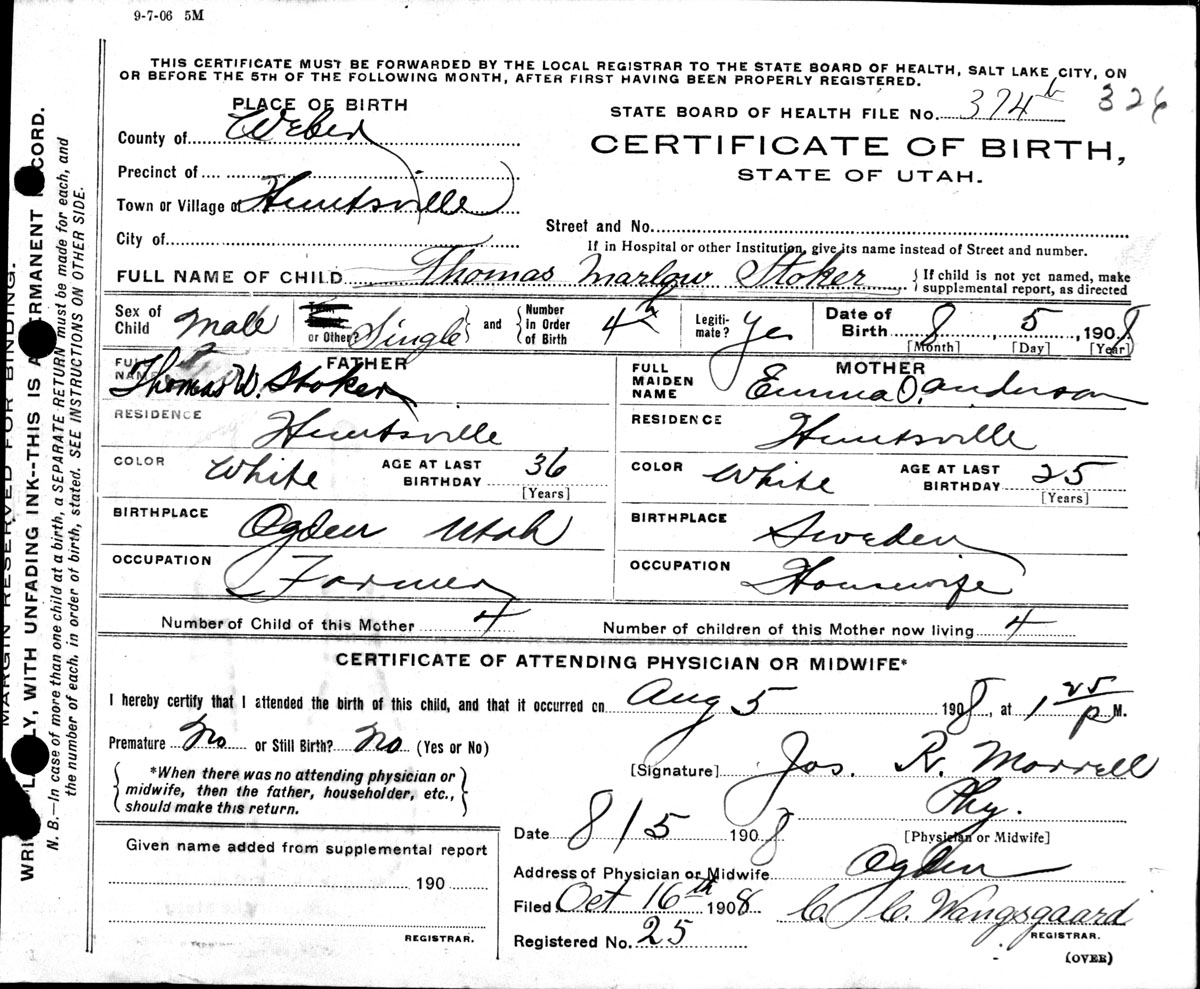 9-7-06 5M
THIS CERTIFICATE MUST BE FORWARDED BY THE LOCAL REGISTRAR TO THE STATE BOARD OF HEALTH, SALT LAKE CITY, ON
OR BEFORE THE 5TH OF THE FOLLOWING MONTH, AFTER FIRST HAVING BEEN PROPERLY REGISTERED.
PLACE OF BIRTH
STATE BOARD OF HEALTH FILE No. 374b 326
County of Weber
CERTIFICATE OF BIRTH,
STATE OF UTAH.
Precinct of
Town or Village of Huntsville
Street and No.
City of
If in Hospital or other Institution, give its name instead of Street and number.
FULL NAME OF CHILD Thomas Marlow Stoker
If child is not yet named, make
supplemental report, as directed
Sex of Child Male
or Other Single and Number in Order of Birth 4th
Legitimate? Yes
Date of Birth 8 5, 1908
[Month] [Day] [Year]
FATHER
FULL NAME Thomas W. Stoker
RESIDENCE Huntsville
COLOR White AGE AT LAST BIRTHDAY 36
[Years]
BIRTHPLACE Ogden Utah
OCCUPATION Farmer
MOTHER
FULL MAIDEN NAME Emma O. Anderson
RESIDENCE Huntsville
COLOR White AGE AT LAST BIRTHDAY 25
[Years]
BIRTHPLACE Sweden
OCCUPATION Housewife
Number of Child of this Mother 4 Number of children of this Mother now living 4
CERTIFICATE OF ATTENDING PHYSICIAN OR MIDWIFE*
I hereby certify that I attended the birth of this child, and that it occurred on Aug 5 1908, at 1 25 P M.
Premature No or Still Birth? No (Yes or No)
*When there was no attending physician or
midwife, then the father, householder, etc.,
should make this return.
[Signature] Jos. R. Morrell
Phy.
[Physician or Midwife]
Date 8/5 1908
Address of Physician or Midwife Ogden
Filed Oct 16th 1908 C. C. Wangsgaard
REGISTRAR.
Registered No. 25
(OVER)
Given name added from supplemental report
190
REGISTRAR.
MARGIN RESERVED FOR BINDING.
LY, WITH UNFADING INK--THIS IS A PERMANENT RECORD.
N. B.—In case of more than one child at a birth, a SEPARATE RETURN must be made for each, and
the number of each, in order of birth, stated. SEE INSTRUCTIONS ON OTHER SIDE.